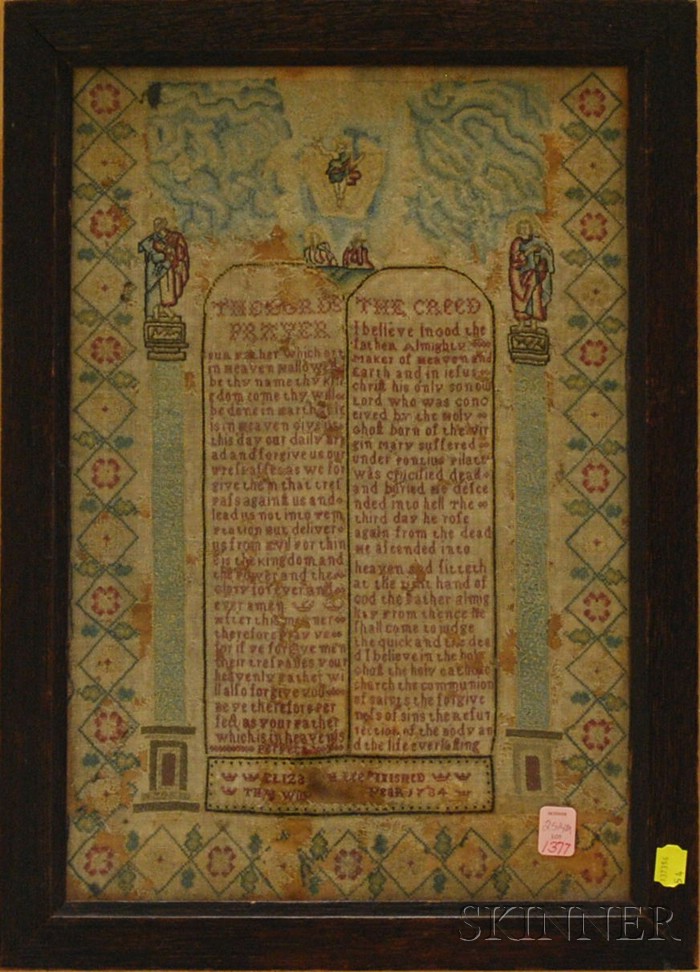 THE LORDS
PRAYER
our father which art
in heaven hallowed
be thy name thy kin
dom come thy will
be done in earth
is in heaven give us
this day our daily br
ad and forgive us our
trespasses as we for
give them that tres
pass against us and
lead us not into tem
tation but deliver
us from evil for thin
e is the kingdom and
the power and the
glory for ever and
ever amen
after this manner
therefore pray ye
for if ye forgive men
their trespasses your
heavenly father wi
ll also forgive you
be ye therefore per
fect as your father
which is in heaven is
perfect
THE CREED
I believe in god the
father Almighty
maker of heaven and
Earth and in iesus
christ his only son our
Lord who was conc
eived by the holy
ghost born of the vir
gin mary suffered
under pontius pilate
was crucified dead
and buried he desce
nded into hell The
third day he rose
again from the dead
he ascended into
heaven and sitteth
at the right hand of
god the father almig
hty from thence he
shall come to judge
the quick and the dea
d I believe in the holy
ghost the holy catholic
church the communion
of saints the forgive
ness of sins the resur
rection of the body an
d the life everlasting
ELIZA FINISHED
THIS WO YEAR 1784
SKINNER
1377
54
SKINNER